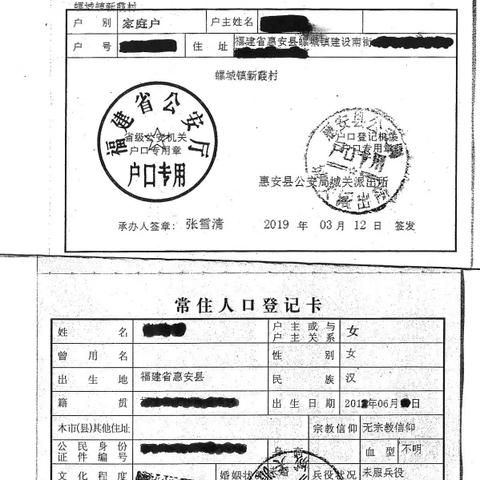 螺城镇新霞村
户 别 家庭户 户主姓名
户 号 住 址 福建省惠安县螺城镇建设南街
螺城镇新霞村
福建省公安厅
省级公安机关 户口登记机关
户口专用章 户口专用章
户口专用
惠安县公安局城关派出所
承办人签章: 张雪清 2019 年 03 月 12 日 签发
常住人口登记卡
姓 名 户主或与户主关系 女
曾用名 性 别 女
出生地 福建省惠安县 民 族 汉
籍 贯 出生日期 2012年06月 日
本市(县)其他住址 宗教信仰 无宗教信仰
公民身份证件编号 身 高 血型 不明
文化程度 婚姻状 兵役状况 未服兵役